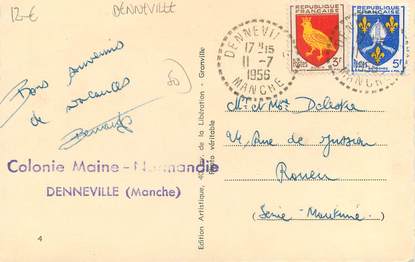 12-€
DENNEVILLE
50
REPUBLIQUE FRANÇAISE
REPUBLIQUE FRANÇAISE
POSTES
3F
5F
DENNEVILLE
17 H 15
11-7
1956
MANCHE
Bons souvenirs
de vacances
Mr et Mme
44, Rue de Jussieu
Rouen
(Seine-Maritime)
Colonie Maine-Normandie
DENNEVILLE (Manche)
4
Edition Artistique, de la Libération - Granville
Photo véritable